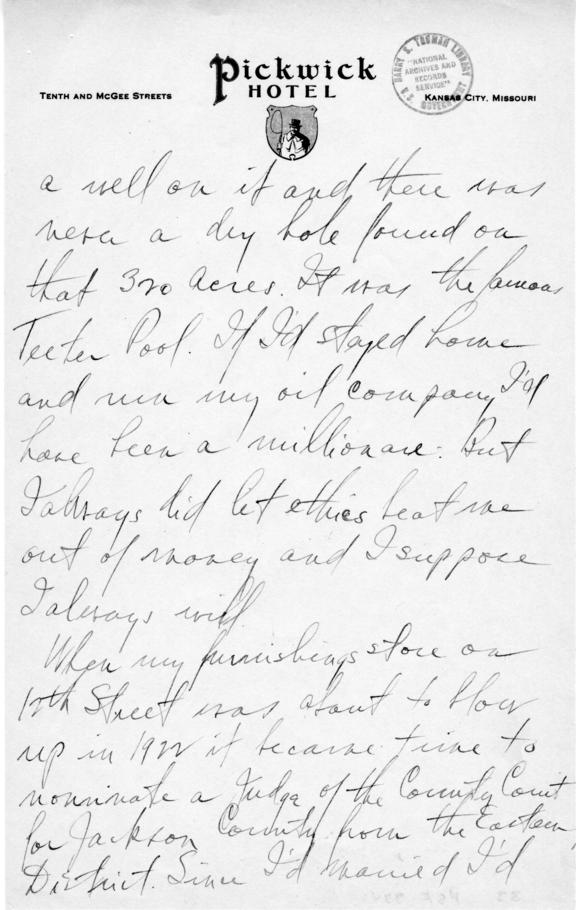 Pickwick
HOTEL
TENTH AND MCGEE STREETS
KANSAS CITY, MISSOURI
HARRY S. TRUMAN LIBRARY
"NATIONAL
ARCHIVES AND
RECORDS
SERVICE"
U.S. GOVERNMENT
a well on it and there was
never a dry hole found on
that 320 acres. It was the famous
Teeter Pool. If I'd stayed home
and run my oil company I'd
have been a millionare. But
I always did let ethics beat me
out of money and I suppose
I always will.
When my furnishings store on
12th Street was about to blow
up in 1922 it became time to
nominate a Judge of the County Court
for Jackson County from the Eastern
District. Since I'd married I'd